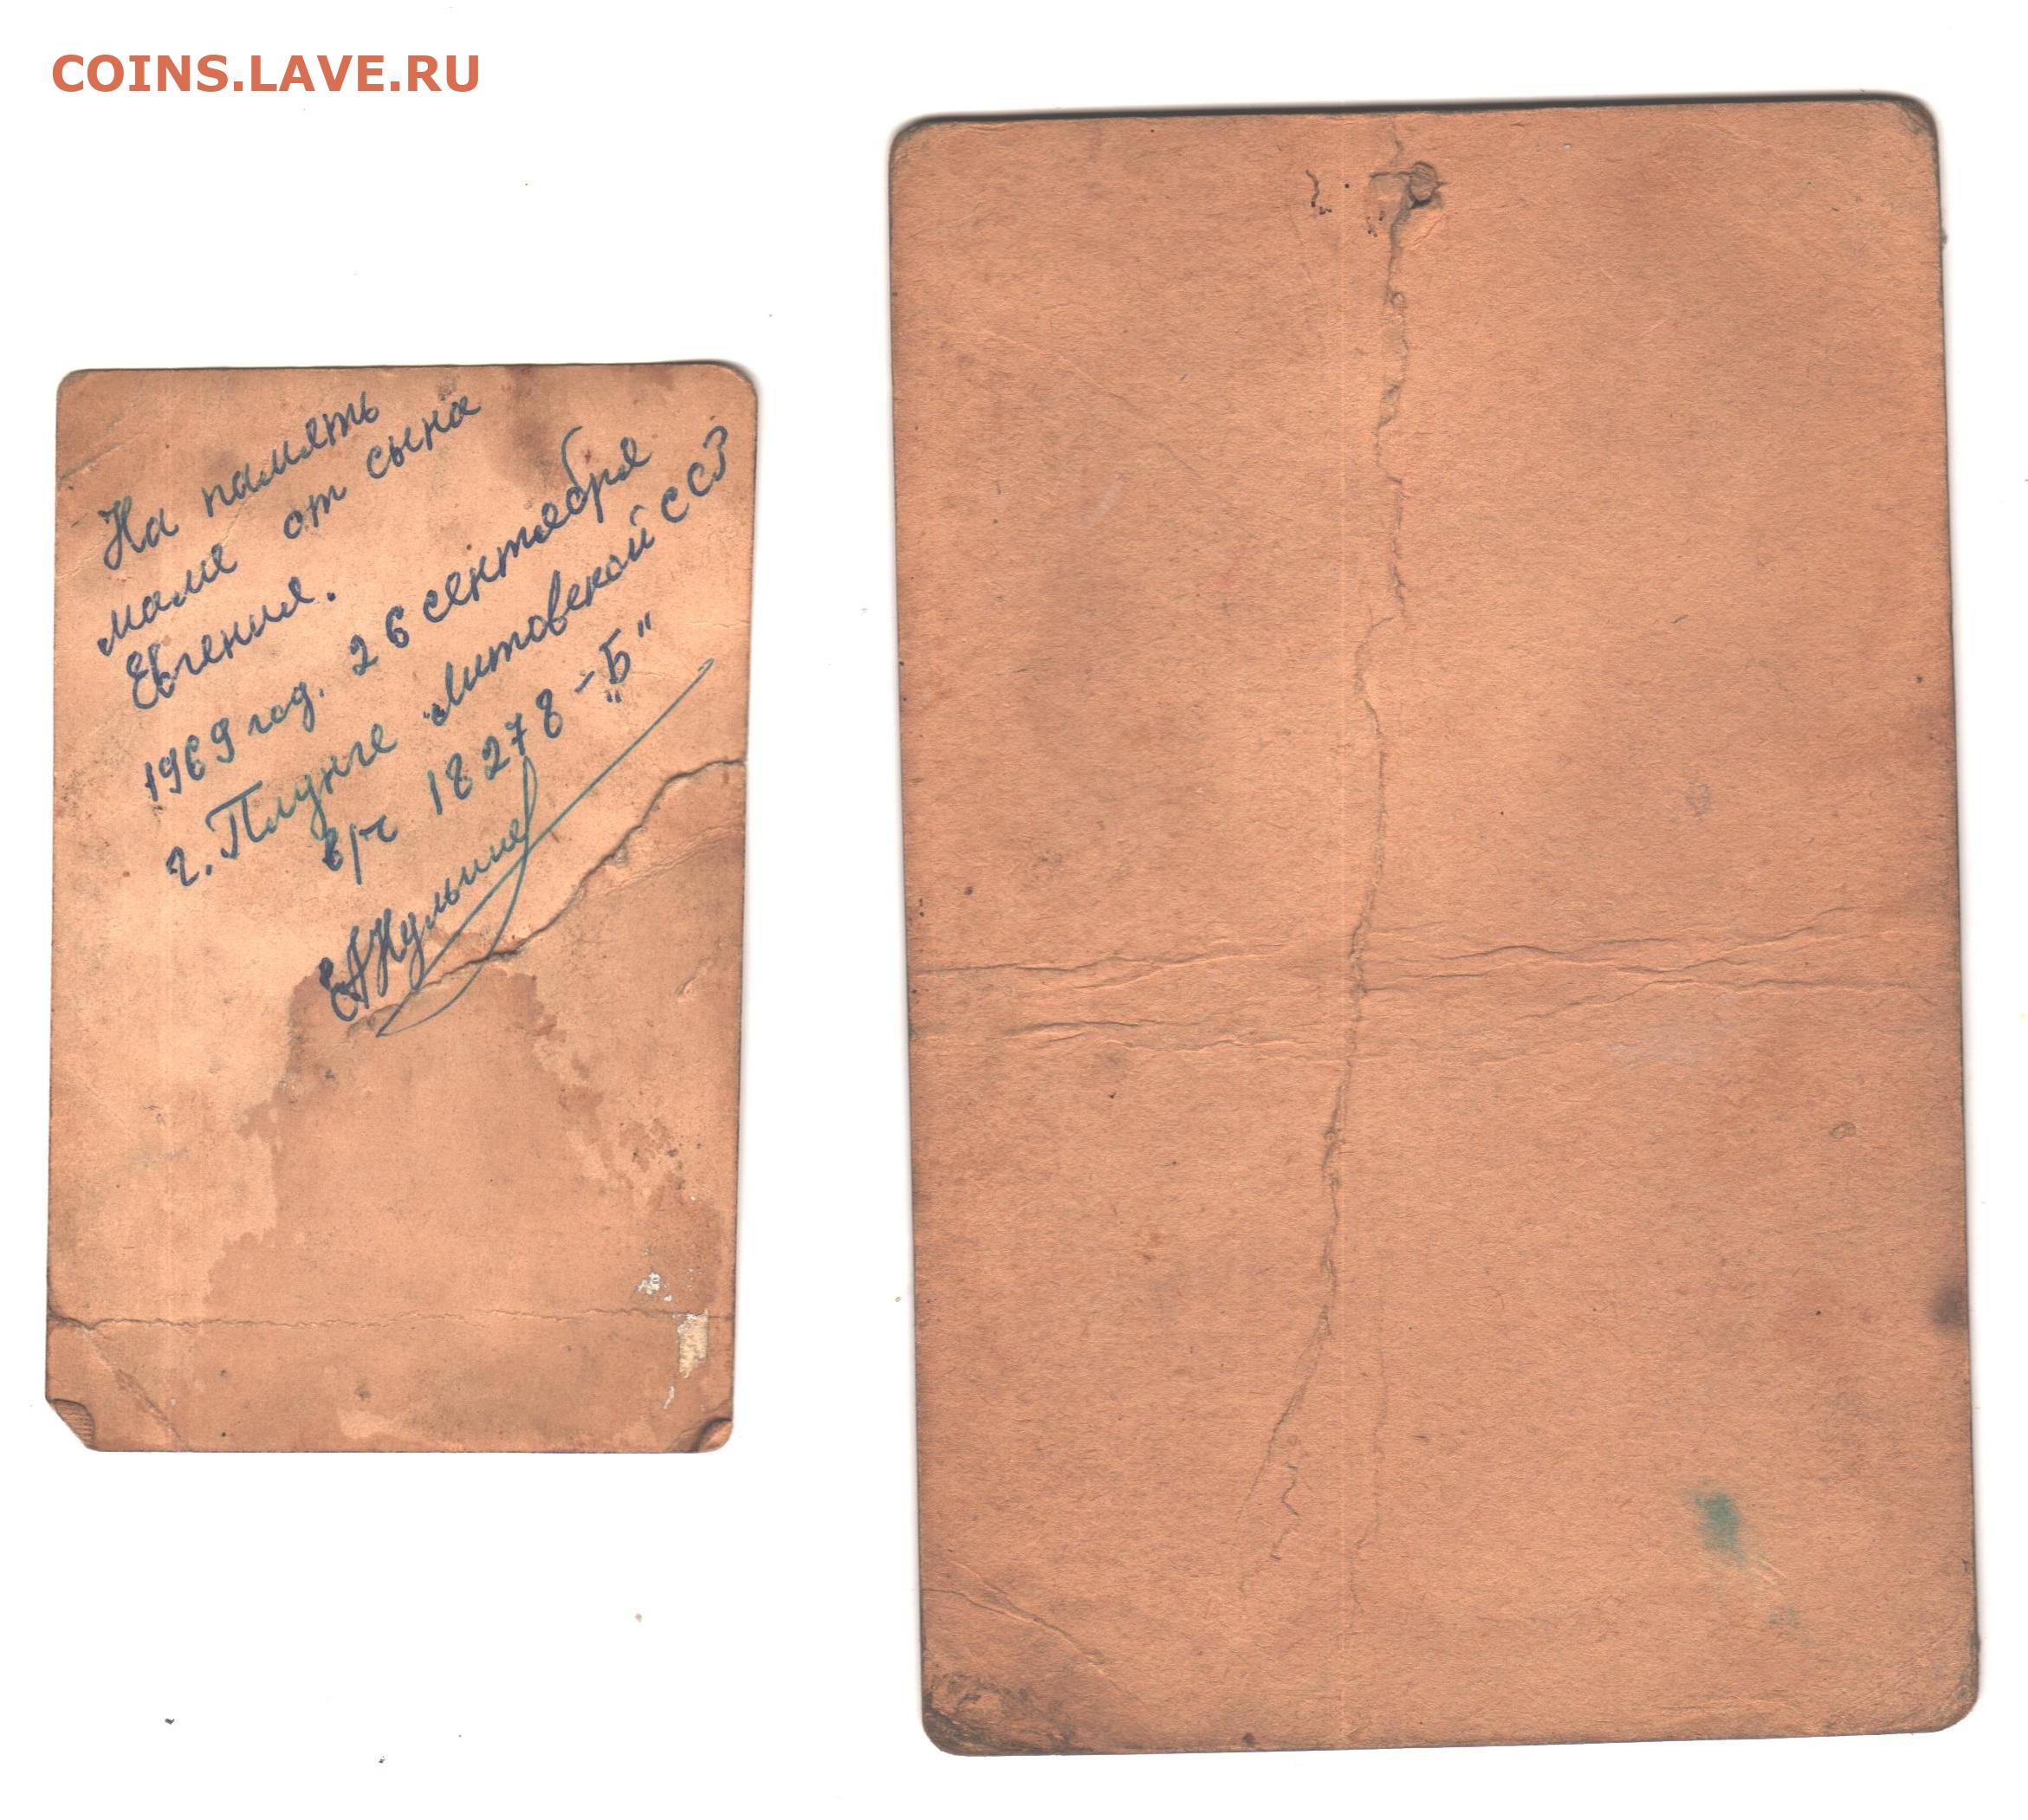 COINS.LAVE.RU
На память
маме от сына
Евгения.
1969 год. 26 сентября
г. Плунге Литовской ССР
в/ч 18278-"Б"